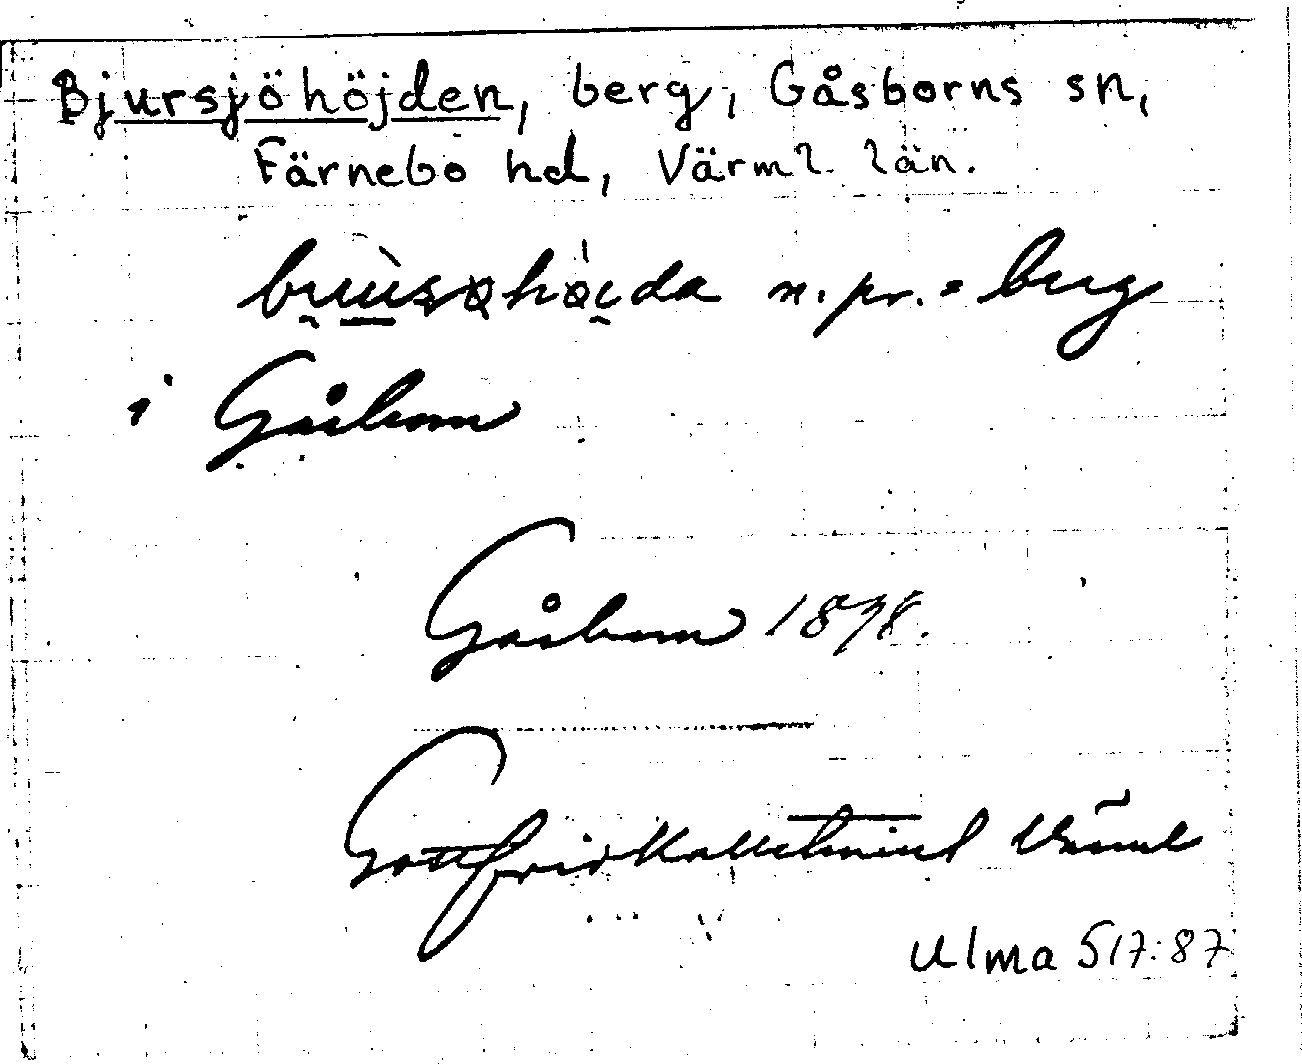 Bjursjöhöjden, berg, Gåsborns sn,
Färnebo hd, Värml. län.
n. pr. = berg
i Gåsborn
Gåsborn 1898.
Gottfrid Kallstenius Värml
Ulma 517:87